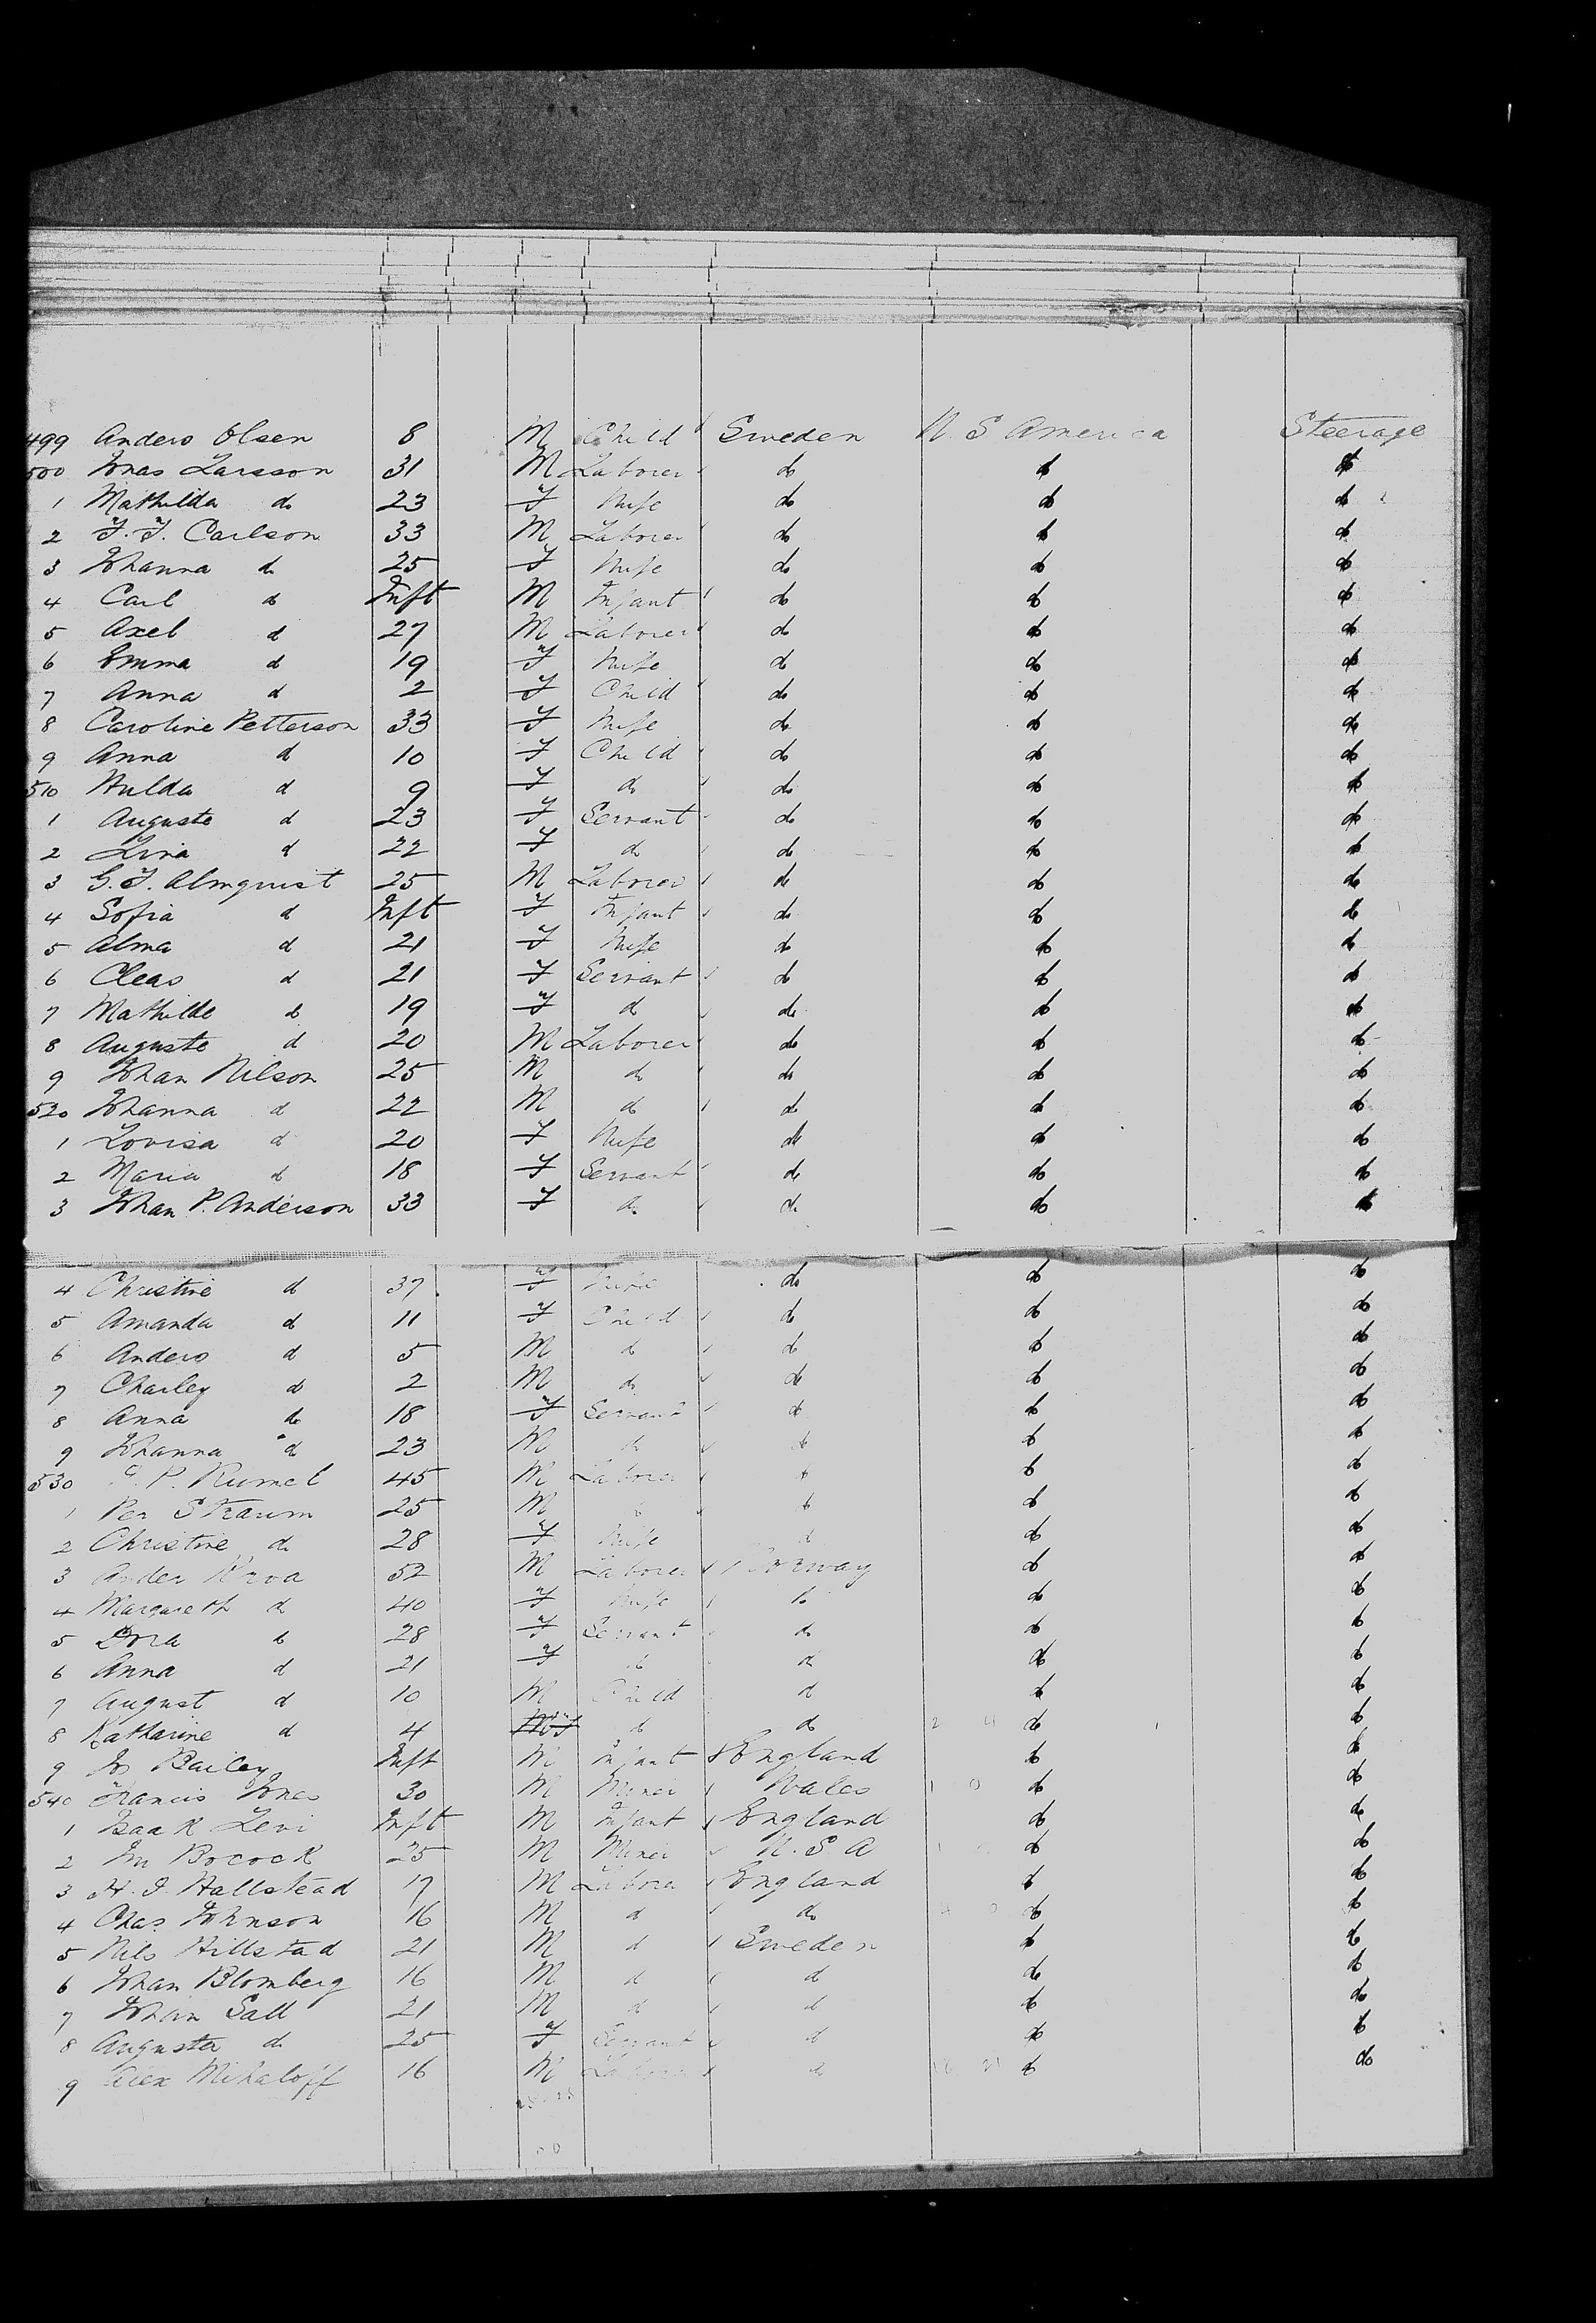 499 Anders Olsen 8 M Child Sweden U. S America Steerage
500 Jonas Larsson 31 M Laborer do do do
1 Mathilda do 23 F Wife do do do
2 F. F. Carlson 33 M Laborer do do do
3 Johanna do 25 F Wife do do do
4 Carl do Inft M Infant do do do
5 Axel do 27 M Laborer do do do
6 Emma do 19 F Wife do do do
7 Anna do 2 F Child do do do
8 Caroline Petterson 33 F Wife do do do
9 Anna do 10 F Child do do do
510 Hulda do 9 F do do do do
1 Auguste do 23 F Servant do do do
2 Lina do 22 F do do do do
3 G. F. Almquist 25 M Laborer do do do
4 Sofia do Inft F Infant do do do
5 Alma do 21 F Wife do do do
6 Cleas do 21 F Servant do do do
7 Mathilde do 19 F do do do do
8 Auguste do 20 M Laborer do do do
9 Johan Nilson 25 M do do do do
520 Johanna do 22 M do do do do
1 Lovisa do 20 F Wife do do do
2 Maria do 18 F Servant do do do
3 Johan P. Anderson 33 F do do do do
4 Christine do 37 F Wife do do do
5 Amanda do 11 F Child do do do
6 Anders do 5 M do do do do
7 Charley do 2 M do do do do
8 Anna do 18 F Servant do do do
9 Johanna do 23 M do do do do
530 P. Rumel 45 M Laborer do do do
1 Per Straum 25 M do do do do
2 Christine do 28 F Wife do do do
3 Ander 52 M Laborer Norway do do
4 Margareth do 40 F Wife do do do
5 Dora do 28 F Servant do do do
6 Anna do 21 F do do do do
7 August do 10 M Child do do do
8 Katharine do 4 F do do do do
9 Jo Bailey Inft M Infant England do do
540 Francis Jones 30 M Miner Wales do do
1 Isaak Levi Inft M Infant England do do
2 Wm Bocock 25 M Miner U. S A do do
3 H. I. Hallstead 17 M Labora England do do
4 Chas Johnson 16 M do do do do
5 Nils Hillstad 21 M do Sweden do do
6 Johan Blomberg 16 M do do do do
7 Johan Sall 21 M do do do do
8 Augusta do 25 F Servant do do do
9 Alex Mihaloff 16 M Labora do do do